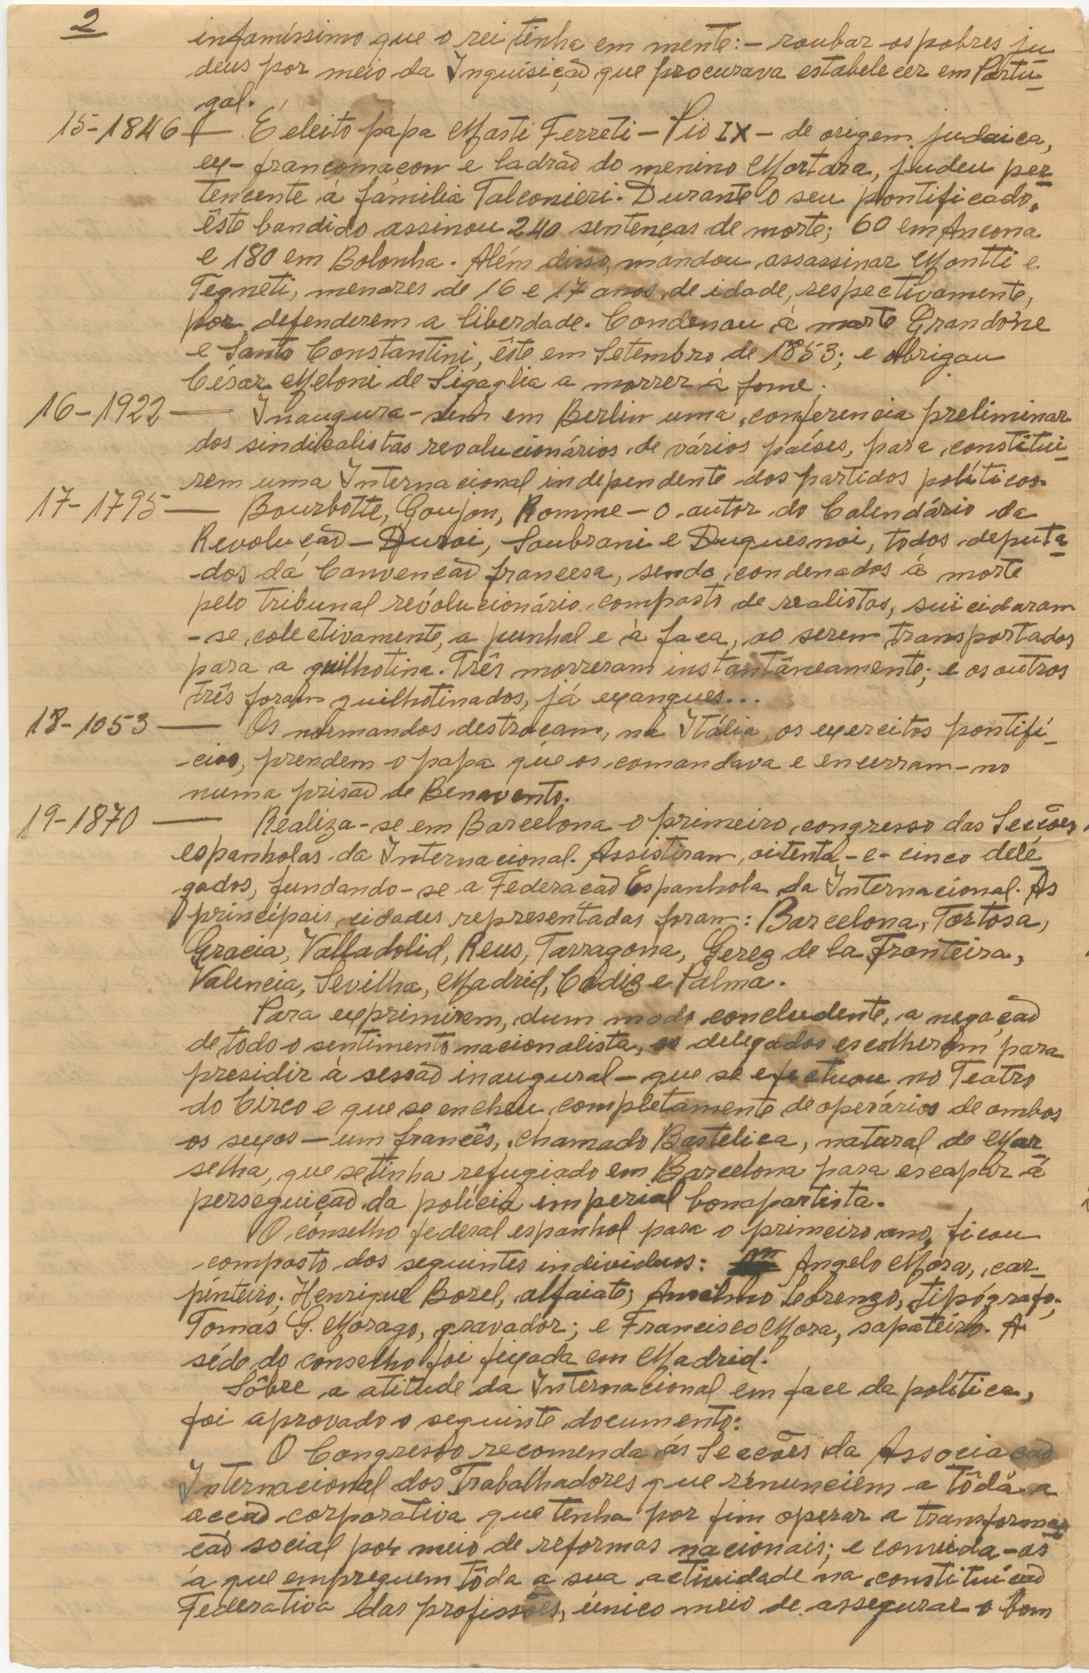 2
infamíssimo que o rei tinha em mente: - roubar os pobres ju
deus por meio da Inquisição que procurava estabelecer em Portu-
gal.
15-1846 — É eleito papa Masti Ferreti - Pio IX - de origem judaica,
ex-françomaçon e ladrão do menino Mortara, judeu per-
tencente á família Talconieri. Durante o seu pontificado,
êste bandido assinou 240 sentenças de morte; 60 em Ancona
e 180 em Bolonha. Além disso, mandou assassinar Montti e
Tegneti, menores de 16 e 17 anos de idade, respectivamente,
por defenderem a liberdade. Condenou á morte Grandone
e Santo Constantini, êste em Setembro de 1853; e obrigou
César Meloni de Sigaglia a morrer á fome.
16-1922 — Inaugura-se em Berlin uma conferencia preliminar
dos sindicalistas revolucionários de vários países, para constitui-
rem uma Internacional independente dos partidos políticos.
17-1795 — Bourbotte, Goujon, Romme - o autor do Calendário da
Revolução - Duroi, Soubrani e Duquesnoi, todos deputa-
dos dá Convenção francesa, sendo condenados á morte
pelo tribunal revolucionário composto de realistas, suicidaram
-se colectivamente, a punhal e á faca, ao serem transportados
para a guilhotina. Três morreram instantâneamente; e os outros
três foram guilhotinados, já exangues...
18-1053 — Os normandos destroçam, na Itália, os exercitos pontifí-
cios, prendem o papa que os comandava e encerram-no
numa prisão de Benavento.
19-1870 — Realiza-se em Barcelona o primeiro congresso das Secções
espanholas da Internacional. Assistiram oitenta-e-cinco dele
gados, fundando-se a Federação Espanhola da Internacional. As
principais cidades representadas foram: Barcelona, Tortosa,
Gracia, Valladolid, Reus, Tarragona, Gerez de la Fronteira,
Valencia, Sevilha, Madrid, Cadiz e Palma.
Para exprimirem, dum modo concludente, a negação
de todo o sentimento nacionalista, os delegados escolheram para
presidir á sessão inaugural - que se efectuou no Teatro
do Circo e que se encheu completamente de operários de ambos
os sexos - um francês, chamado Bastelica, natural de Mar
selha, que se tinha refugiado em Barcelona para escapar á
perseguição da polícia imperial bonapartista.
O conselho federal espanhol para o primeiro ano, ficou
composto dos seguintes individuos: Angelo Mora, car-
pinteiro; Henrique Borel, alfaiate; Anselmo Lorenzo, tipógrafo;
Tomás G. Morago, gravador; e Francisco Mora, sapateiro. A
séde do conselho foi fixada em Madrid.
Sôbre a atitude da Internacional em face da política,
foi aprovado o seguinte documento:
O Congresso recomenda ás Secções da Associação
Internacional dos Trabalhadores que renunciem a tôda a
acção corporativa que tenha por fim operar a transforma-
ção social por meio de reformas nacionais; e convida-as
a que empreguem tôda a sua actividade na constituição
Federativa das profissões, único meio de assegurar o bom